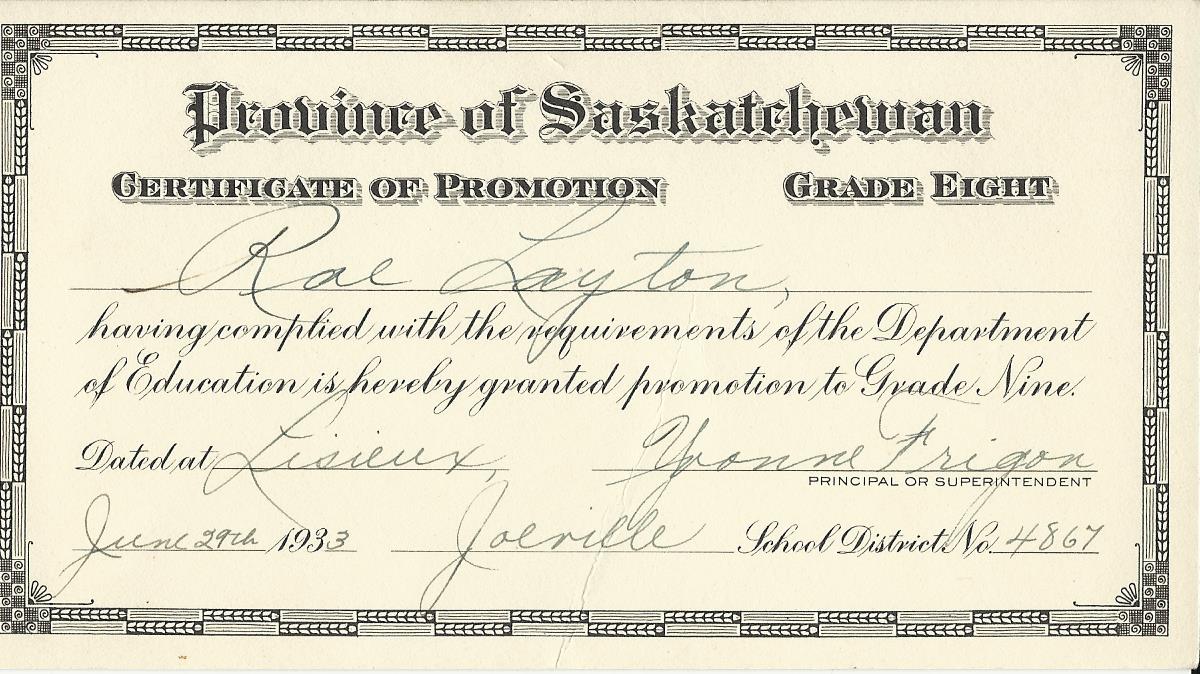 Province of Saskatchewan
CERTIFICATE OF PROMOTION GRADE EIGHT
Rae Layton,
having complied with the requirements of the Department
of Education is hereby granted promotion to Grade Nine.
Dated at Lisieux, Yvonne Frigon
PRINCIPAL OR SUPERINTENDENT
June 29th 1933 Joeville School District No. 4867